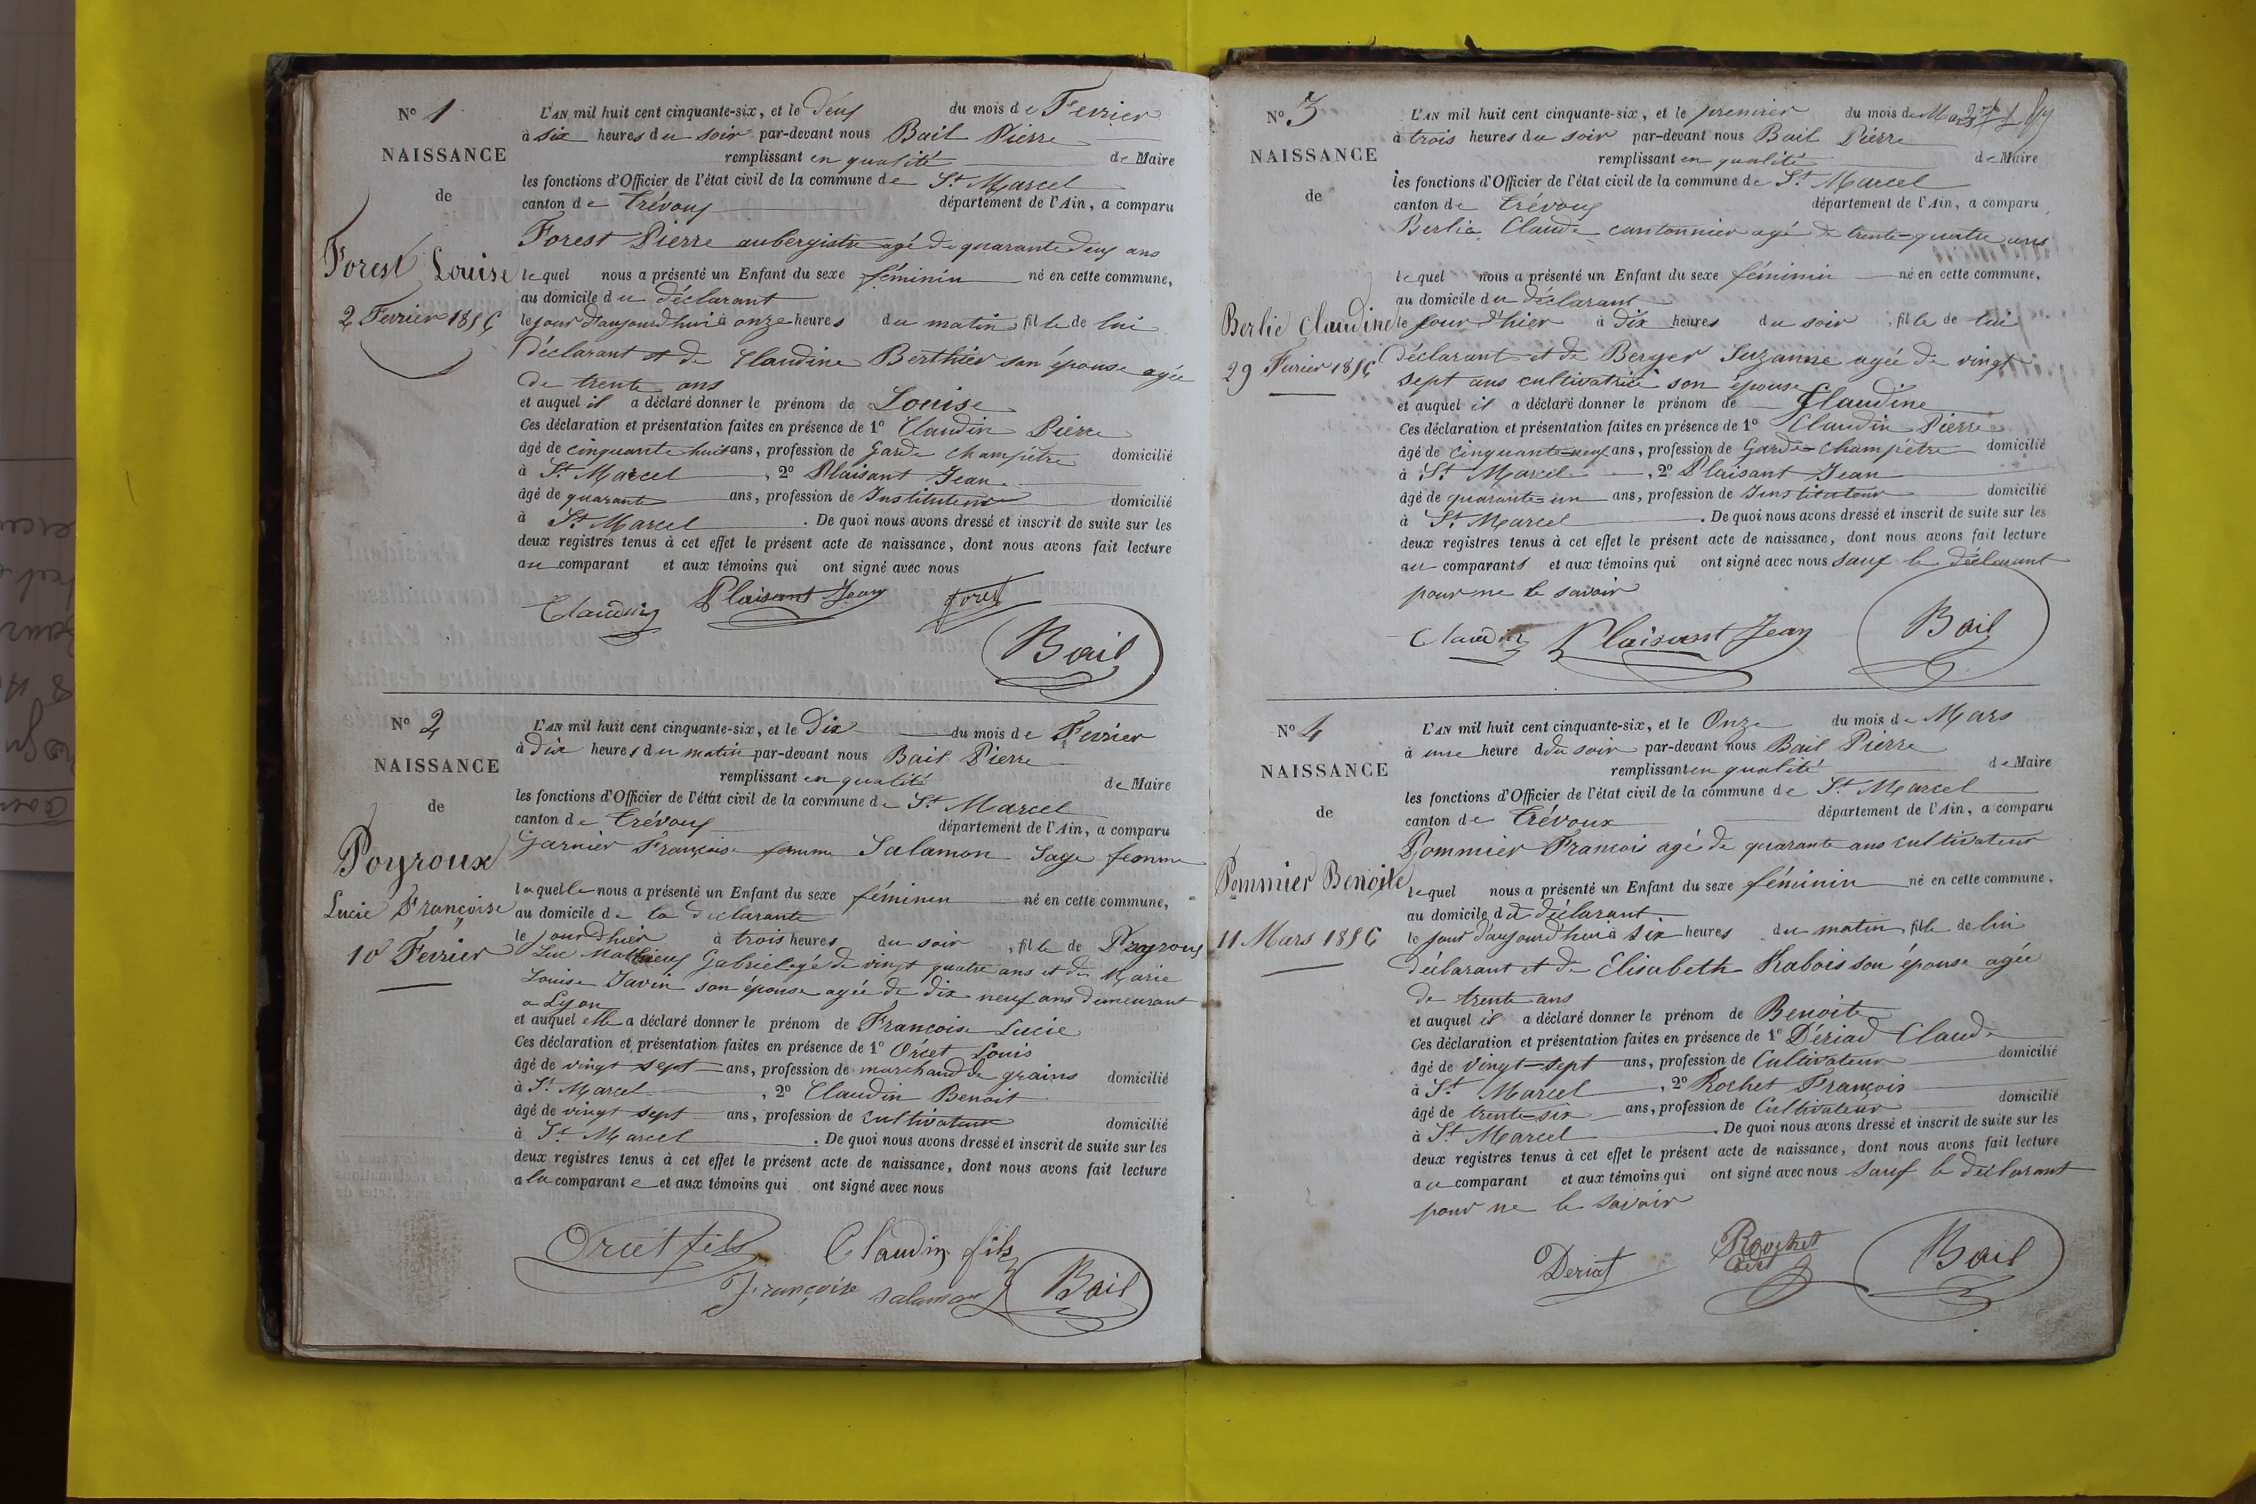 N° 1
NAISSANCE
de
Forest Louise
2 Fevrier 1856
L'AN mil huit cent cinquante-six, et le deux du mois de Fevrier
à six heures du soir par-devant nous Bail Pierre
remplissant en qualité de Maire
les fonctions d'Officier de l'état civil de la commune de St Marcel
canton de Trévoux département de l'Ain, a comparu
Forest Pierre aubergiste agé de quarante deux ans
lequel nous a présenté un Enfant du sexe féminin né en cette commune,
au domicile du déclarant
le jour d'aujourd'hui à onze heures du matin fille de lui
déclarant et de Claudine Berthier son épouse agée
de trente ans
et auquel il a déclaré donner le prénom de Louise
Ces déclaration et présentation faites en présence de 1° Claudin Pierre
âgé de cinquante huit ans, profession de Garde champêtre domicilié
à St Marcel , 2° Plaisant Jean
âgé de quarante ans, profession de Instituteur domicilié
à St Marcel . De quoi nous avons dressé et inscrit de suite sur les
deux registres tenus à cet effet le présent acte de naissance, dont nous avons fait lecture
au comparant et aux témoins qui ont signé avec nous
Claudin Plaisant Jean Forest
Bail
N° 2
NAISSANCE
de
Poyroux
Lucie Françoise
10 Fevrier
L'AN mil huit cent cinquante-six, et le Dix du mois de Fevrier
à dix heures du matin par-devant nous Bail Pierre
remplissant en qualité de Maire
les fonctions d'Officier de l'état civil de la commune de St Marcel
canton de Trévoux département de l'Ain, a comparu
Garnier Françoise femme Salamon Sage femme
laquelle nous a présenté un Enfant du sexe féminin né en cette commune,
au domicile de la déclarante
le jour d'hier à trois heures du soir , fille de Poyroux
Luc Mathieux Gabriel agé de vingt quatre ans et de Marie
Louise Javin son épouse agée de dix neuf ans demeurant
a Lyon
et auquel elle a déclaré donner le prénom de Francoise Lucie
Ces déclaration et présentation faites en présence de 1° Orcet Louis
âgé de vingt sept ans, profession de marchand de grains domicilié
à St Marcel , 2° Claudin Benoit
âgé de vingt sept ans, profession de cultivateur domicilié
à St Marcel . De quoi nous avons dressé et inscrit de suite sur les
deux registres tenus à cet effet le présent acte de naissance, dont nous avons fait lecture
a la comparante et aux témoins qui ont signé avec nous
Orcet fils Claudin fils
Françoise Salamon Bail
N° 3
NAISSANCE
de
Berlie Claudine
29 Fevrier 1856
L'AN mil huit cent cinquante-six, et le premier du mois de Mars
à trois heures du soir par-devant nous Bail Pierre
remplissant en qualité de Maire
les fonctions d'Officier de l'état civil de la commune de St Marcel
canton de Trévoux département de l'Ain, a comparu
Berlie Claude cantonnier agé de trente-quatre ans
lequel nous a présenté un Enfant du sexe féminin né en cette commune,
au domicile du déclarant
le jour d'hier à dix heures du soir , fille de lui
déclarant et de Berger Suzanne agée de vingt
sept ans cultivatrice son épouse
et auquel il a déclaré donner le prénom de Claudine
Ces déclaration et présentation faites en présence de 1° Claudin Pierre
âgé de cinquante-neuf ans, profession de Garde-champêtre domicilié
à St Marcel , 2° Plaisant Jean
âgé de quarante-un ans, profession de Instituteur domicilié
à St Marcel . De quoi nous avons dressé et inscrit de suite sur les
deux registres tenus à cet effet le présent acte de naissance, dont nous avons fait lecture
au comparants et aux témoins qui ont signé avec nous sauf le déclarant
pour ne le savoir
Claudin Plaisant Jean Bail
N° 4
NAISSANCE
de
Pommier Benoite
11 Mars 1856
L'AN mil huit cent cinquante-six, et le Onze du mois de Mars
à une heure ddu soir par-devant nous Bail Pierre
remplissant en qualité de Maire
les fonctions d'Officier de l'état civil de la commune de St Marcel
canton de Trévoux département de l'Ain, a comparu
Pommier Francois agé de quarante ans cultivateur
lequel nous a présenté un Enfant du sexe féminin né en cette commune,
au domicile du déclarant
le jour d'aujourd'hui à six heures du matin fille de lui
déclarant et de Elisabeth Rabois son épouse agée
de trente ans
et auquel il a déclaré donner le prénom de Benoite
Ces déclaration et présentation faites en présence de 1° Dériad Claude
âgé de vingt-sept ans, profession de Cultivateur domicilié
à St Marcel , 2° Rochet François
âgé de trente-six ans, profession de Cultivateur domicilié
à St Marcel . De quoi nous avons dressé et inscrit de suite sur les
deux registres tenus à cet effet le présent acte de naissance, dont nous avons fait lecture
au comparant et aux témoins qui ont signé avec nous sauf le déclarant
pour ne le savoir
Deriat Rochet Bail